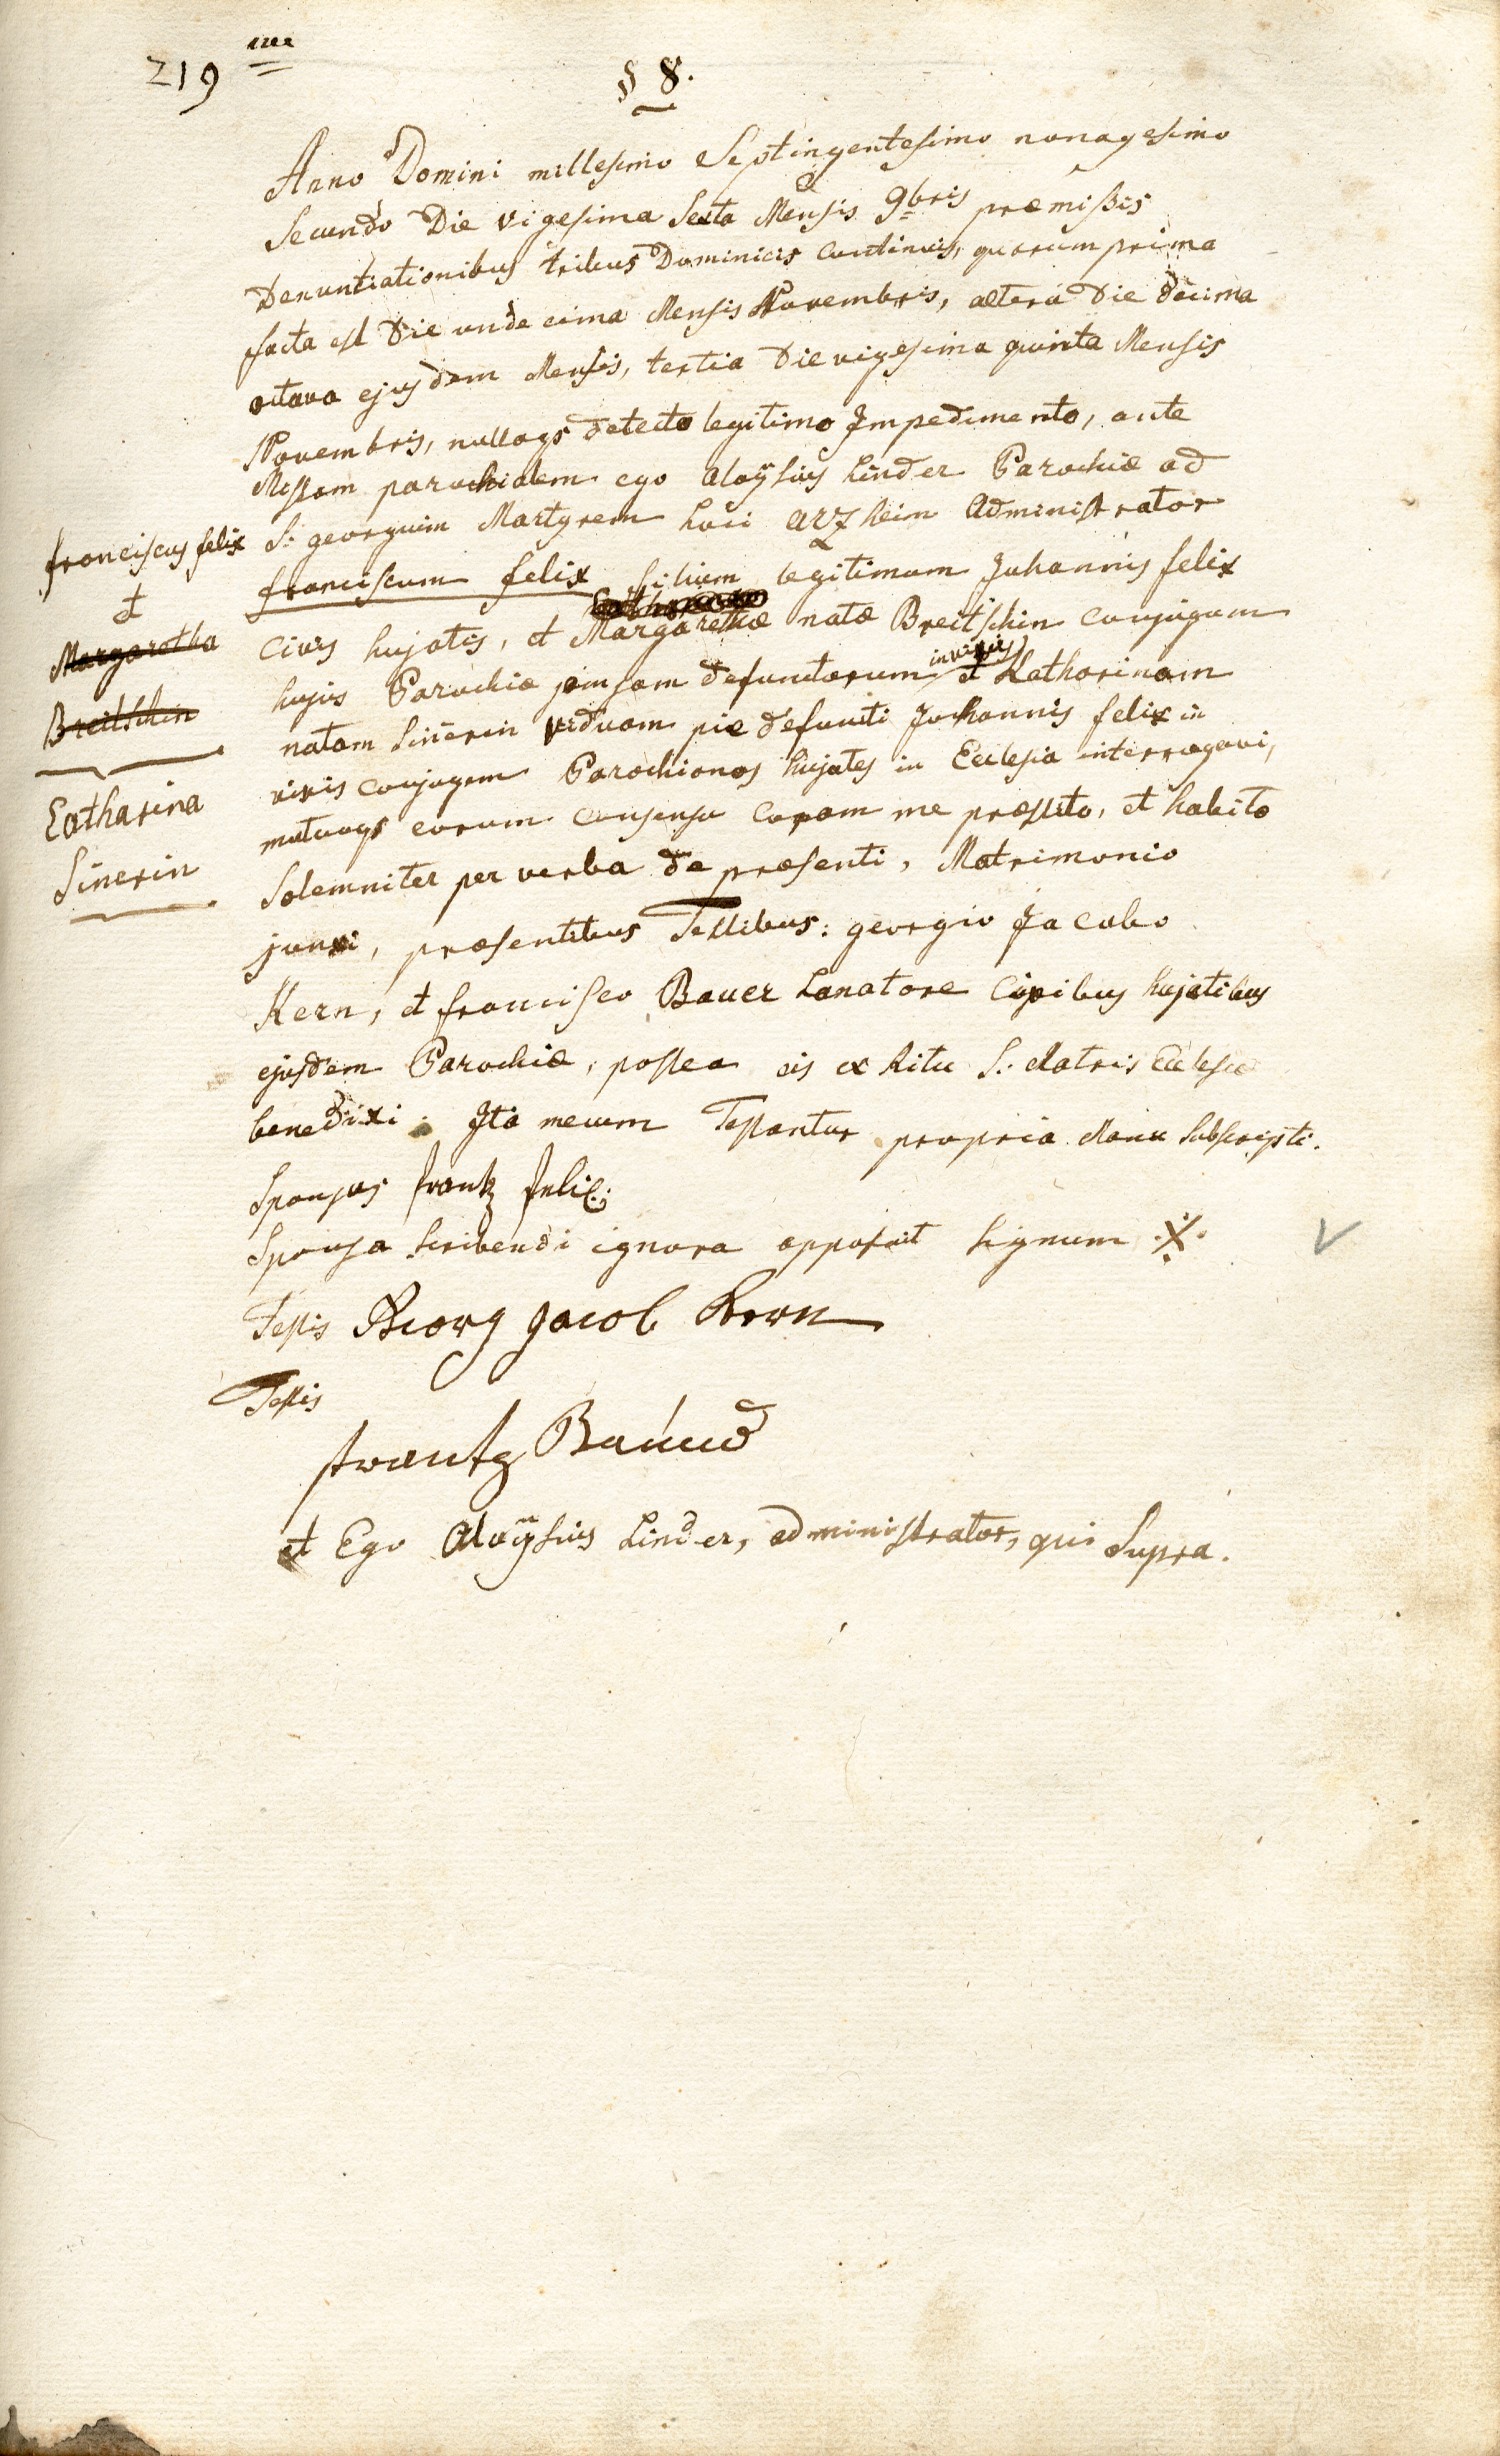 219 me
§ 8.
Anno Domini millesimo Septingentesimo nonagesimo
Secundo Die vigesima Sexta Mensis 9bris præmißis
Denuntiationibus tribus Dominicis continuis, quarum prima
facta est Die undecima Mensis Novembris, altera Die decima
octava ejusdem Mensis, tertia Die vigesima quinta Mensis
Novembris, nulloqs detecto legitimo Impedimento, ante
Missam parochialem ego Aloÿsius Linder Parochiæ ad
S: georgium Martyrem Loci Arzheim Administrator
franciscum felix filium legitimum Johannis felix
civis hujatis, et Margarethæ natæ Breitschin conjugum
hujus Parochiæ jam jam defunctorum in vivis et Katharinam
natam Sinerin viduam pie defuncti Johannis felix in
vivis conjugem Parochianos hujates in Ecclesia interrogavi,
mutuoqs eorum consensu coram me præstito, et habito
Solemniter per verba de præsenti, Matrimonio
junxi, præsentibus Testibus: georgio Jacobo
Kern, et francisco Bauer Lanatore Civibus hujatibus
ejusdem Parochiæ, postea eis ex Ritu S: Matris Ecclesiæ
benedixi. Ita mecum Testantur propria Manu Subscripti.
Sponsus frantz felix
Sponsa scribendi ignara apposuit signum X
Testis Georg Jacob Kern
Testis
frantz Bauer
et Ego Aloÿsius Linder, administrator, qui Supra.
franciscus felix
et
Margaretha
Breitschin
Catharina
Sinerin